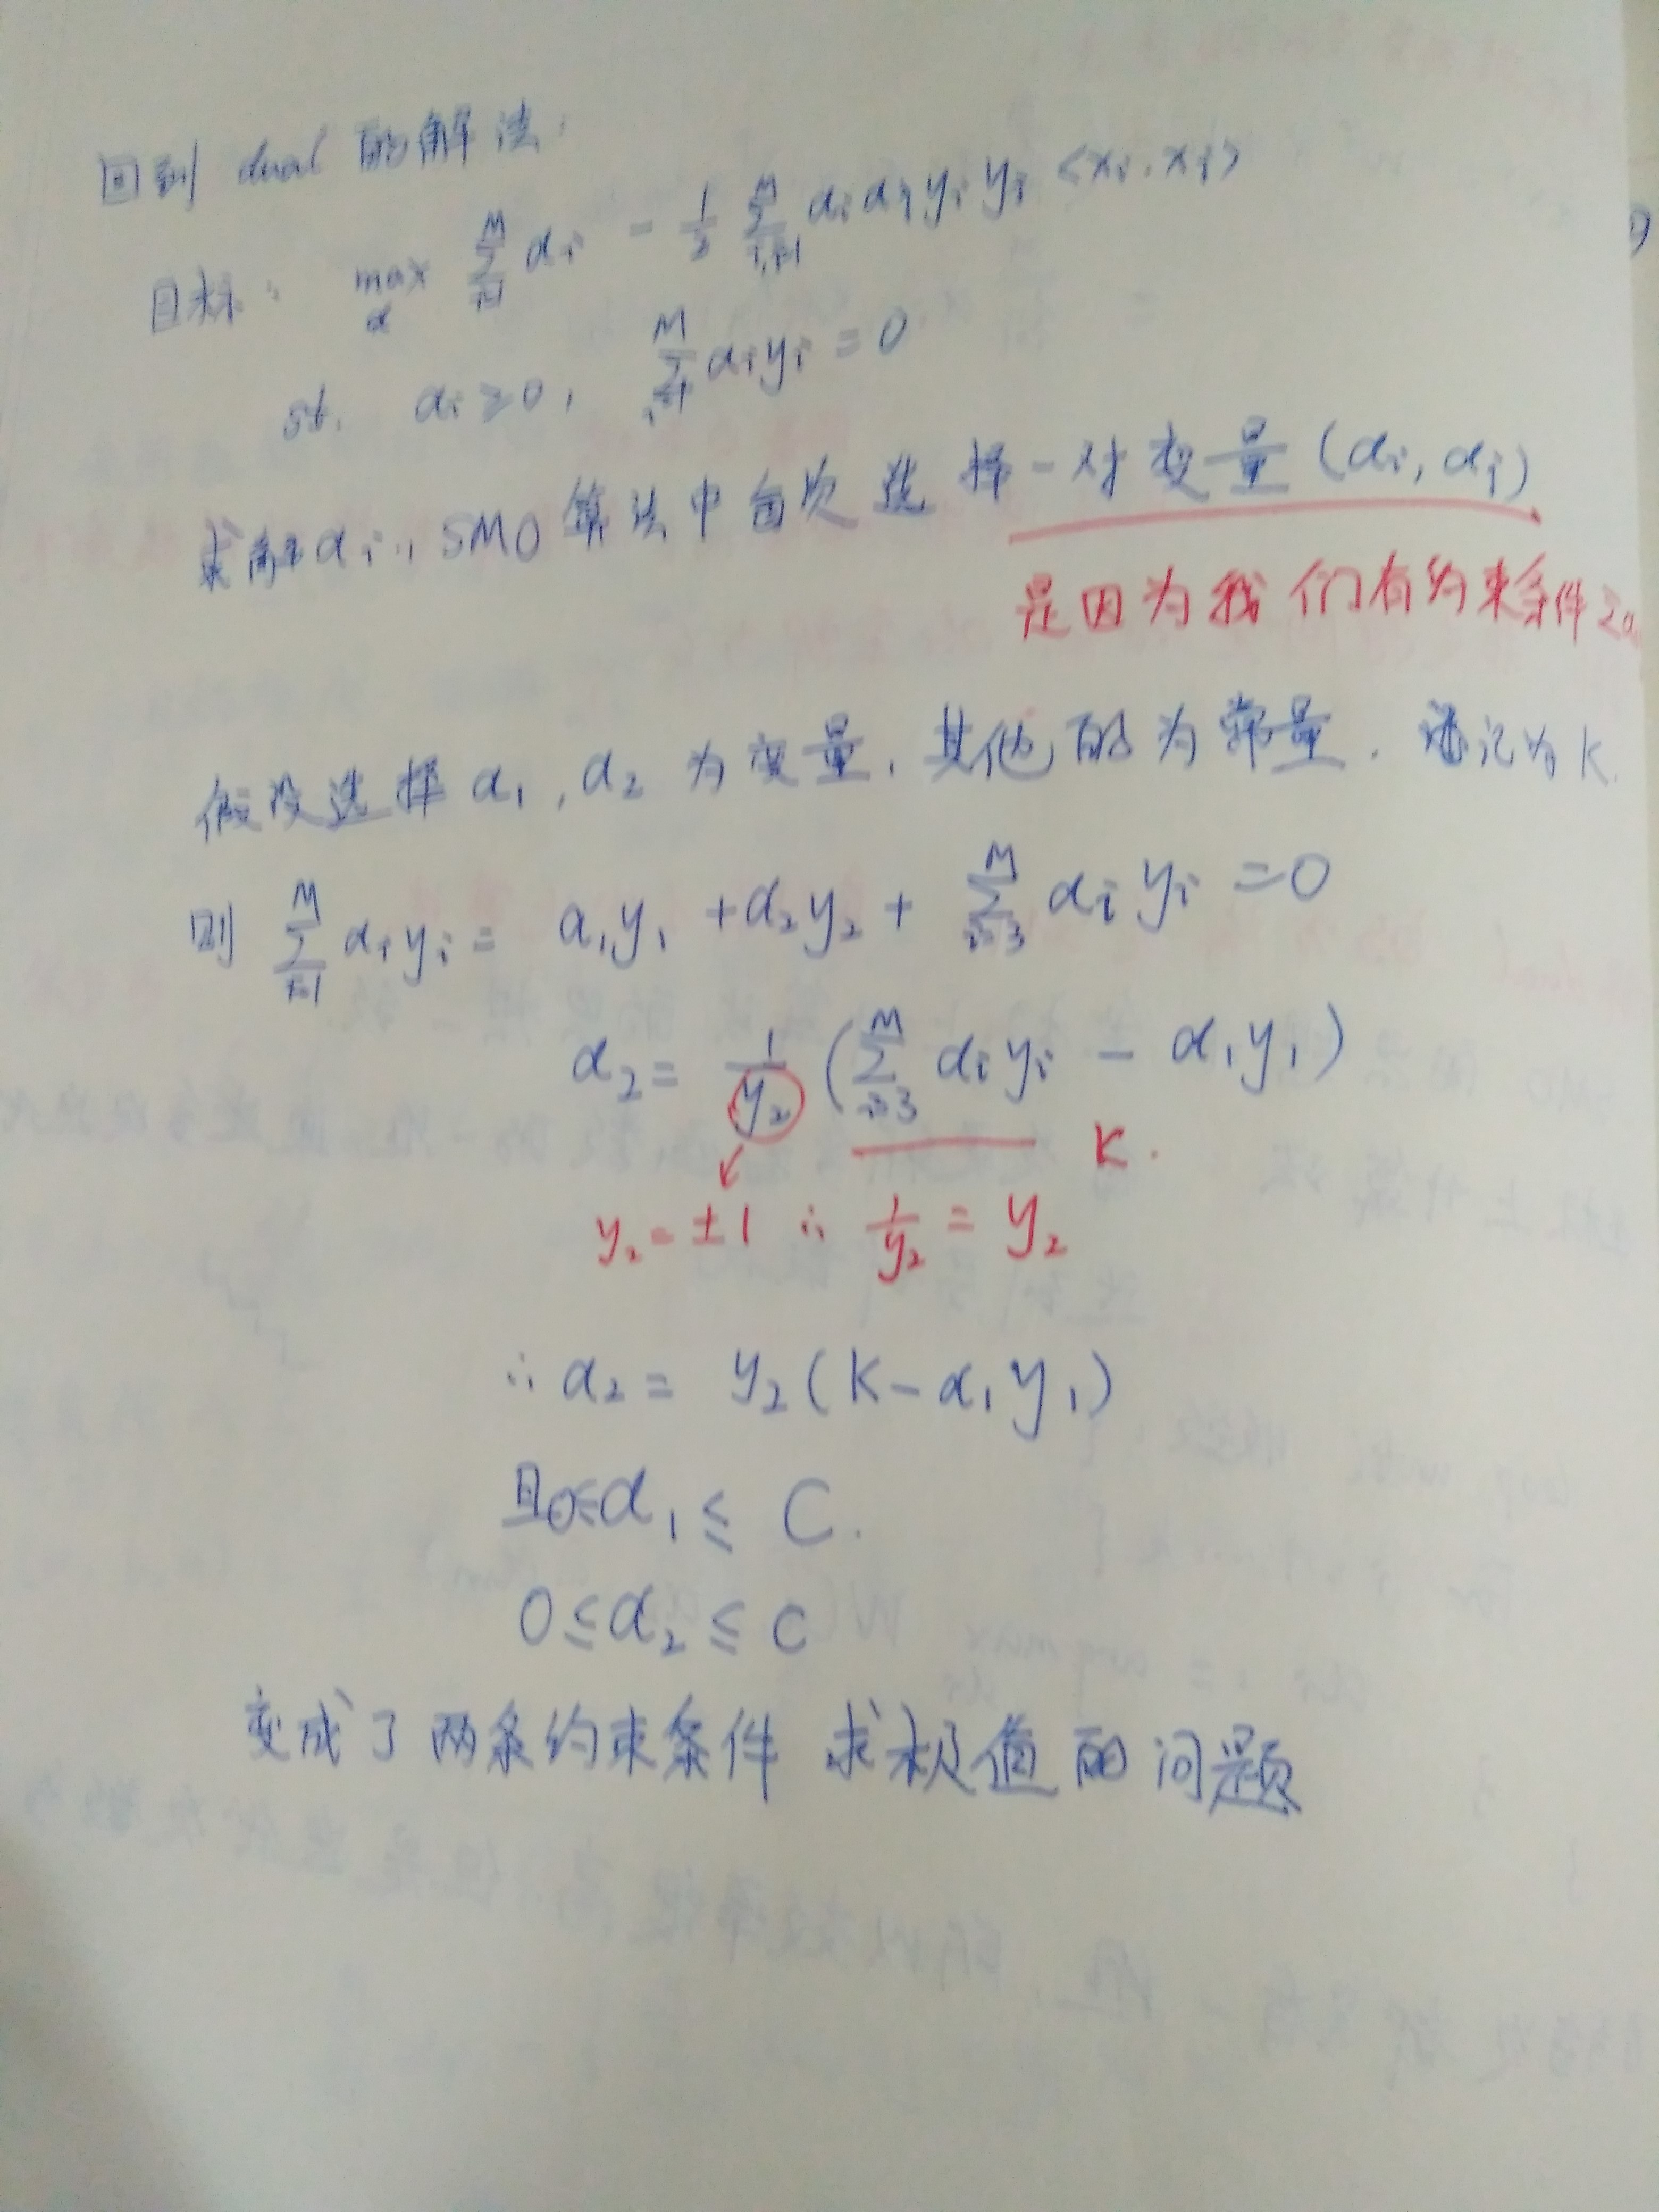 回到 dual 的解法:
目标: max_α Σ_{i=1}^{M} αi - 1/2 Σ_{i,j=1}^{M} αi αj yi yj <xi, xj>
st. αi ≥ 0, Σ_{i=1}^{M} αi yi = 0
求解 αi, SMO 算法中每次选择一对变量 (αi, αj)
是因为我们有约束条件 Σα
假设选择 α1, α2 为变量, 其他的为常量. 记为 K.
则 Σ_{i=1}^{M} αi yi = α1 y1 + α2 y2 + Σ_{i=3}^{M} αi yi = 0
α2 = 1/y2 (Σ_{i=3}^{M} αi yi - α1 y1)
K.
y2 = ±1 ∴ 1/y2 = y2
∴ α2 = y2 (K - α1 y1)
且 0 ≤ α1 ≤ C.
0 ≤ α2 ≤ C
变成了两条约束条件 求极值的问题